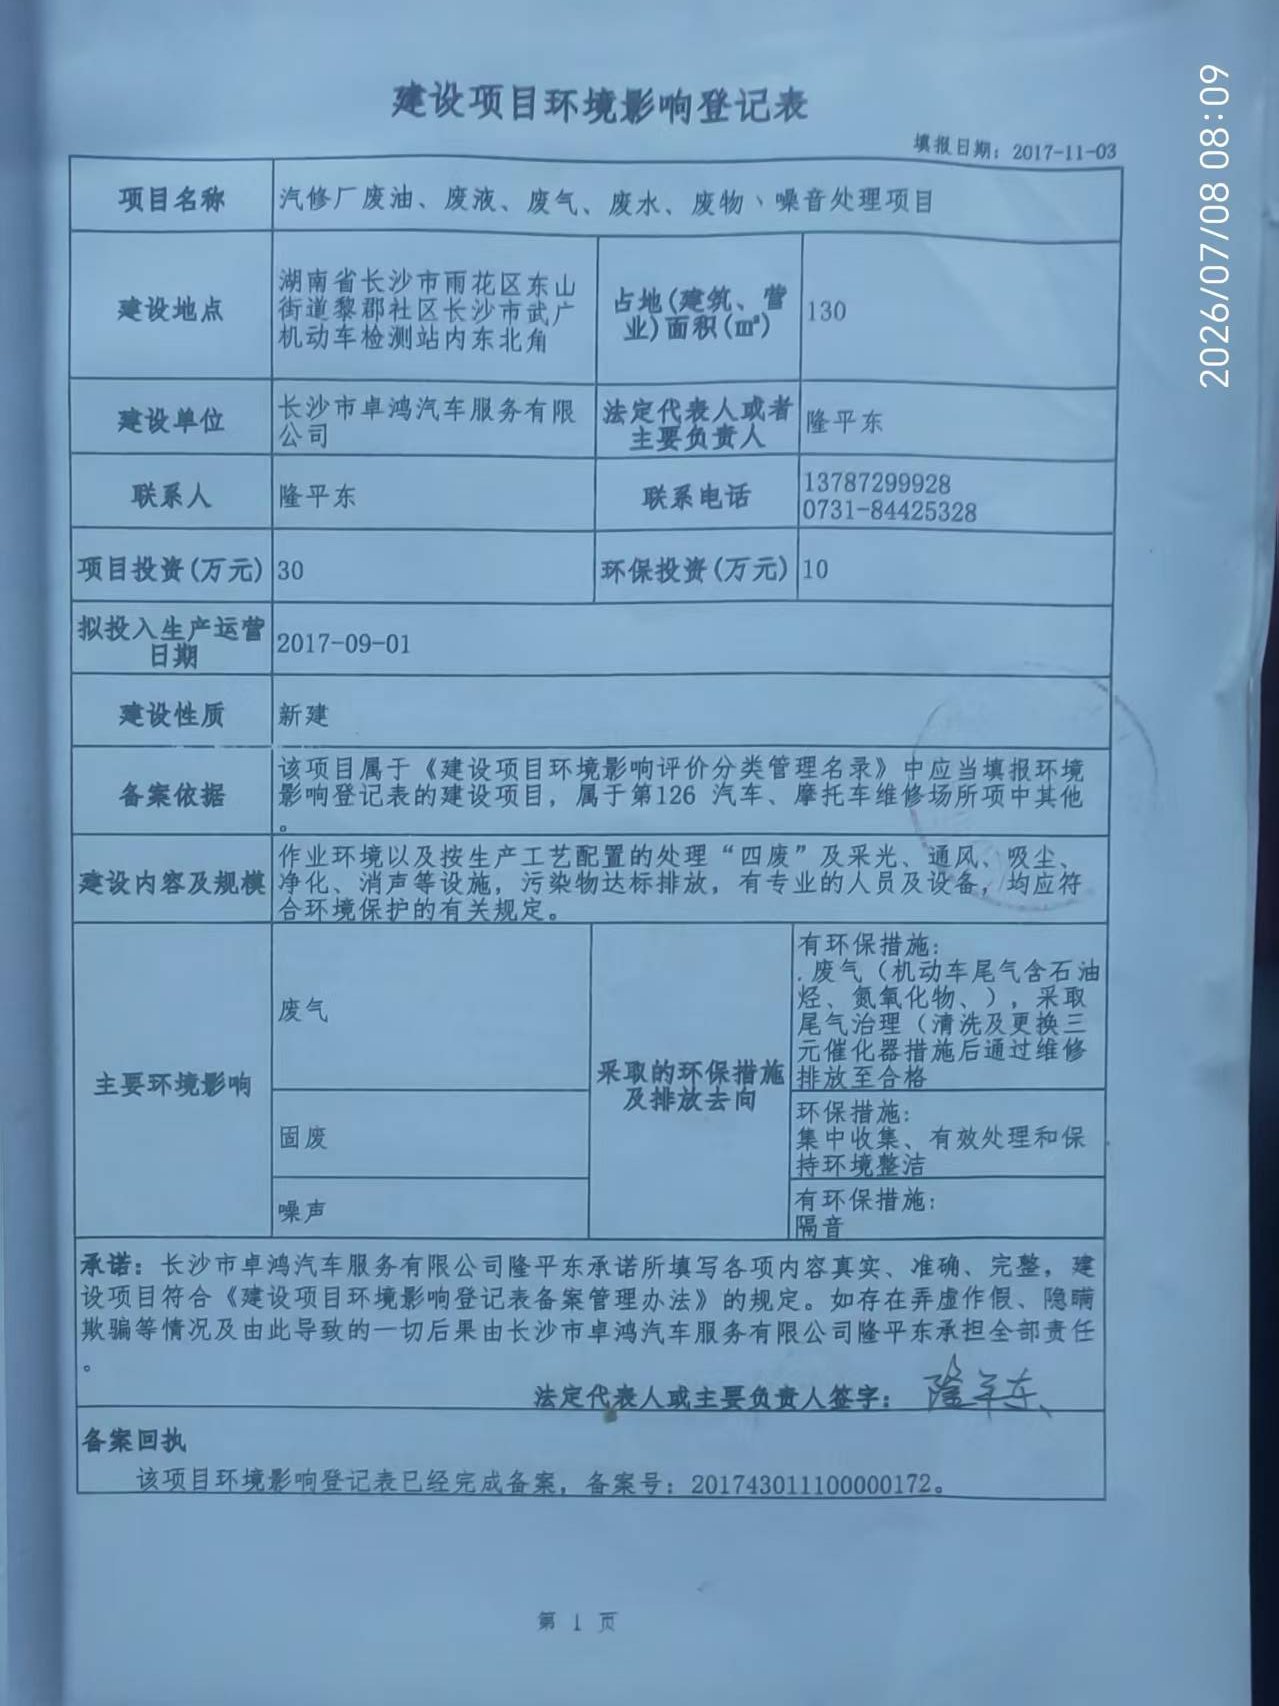 建设项目环境影响登记表
填报日期：2017-11-03
项目名称
汽修厂废油、废液、废气、废水、废物、噪音处理项目
建设地点
湖南省长沙市雨花区东山
街道黎郡社区长沙市武广
机动车检测站内东北角
占地(建筑、营
业)面积(㎡)
130
建设单位
长沙市卓鸿汽车服务有限
公司
法定代表人或者
主要负责人
隆平东
联系人
隆平东
联系电话
13787299928
0731-84425328
项目投资(万元)
30
环保投资(万元)
10
拟投入生产运营
日期
2017-09-01
建设性质
新建
备案依据
该项目属于《建设项目环境影响评价分类管理名录》中应当填报环境
影响登记表的建设项目，属于第126 汽车、摩托车维修场所项中其他
。
建设内容及规模
作业环境以及按生产工艺配置的处理“四废”及采光、通风、吸尘、
净化、消声等设施，污染物达标排放，有专业的人员及设备，均应符
合环境保护的有关规定。
主要环境影响
废气
采取的环保措施
及排放去向
有环保措施：
.废气（机动车尾气含石油
烃、氮氧化物、），采取
尾气治理（清洗及更换三
元催化器措施后通过维修
排放至合格
固废
环保措施：
集中收集、有效处理和保
持环境整洁
噪声
有环保措施：
隔音
承诺：长沙市卓鸿汽车服务有限公司隆平东承诺所填写各项内容真实、准确、完整，建
设项目符合《建设项目环境影响登记表备案管理办法》的规定。如存在弄虚作假、隐瞒
欺骗等情况及由此导致的一切后果由长沙市卓鸿汽车服务有限公司隆平东承担全部责任
。
法定代表人或主要负责人签字：隆平东
备案回执
该项目环境影响登记表已经完成备案，备案号：201743011100000172。
第 1 页
2026/07/08 08:09